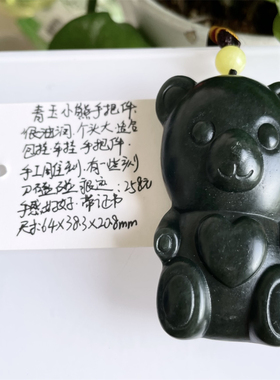 青玉小熊手把件
很油润，个头大，适合
包挂，手挂，手把件，
手工周性刻，有一些刻
刀磕碰，捡漏：258元
手感好好，带证书
尺寸：64×38.3×20.8mm